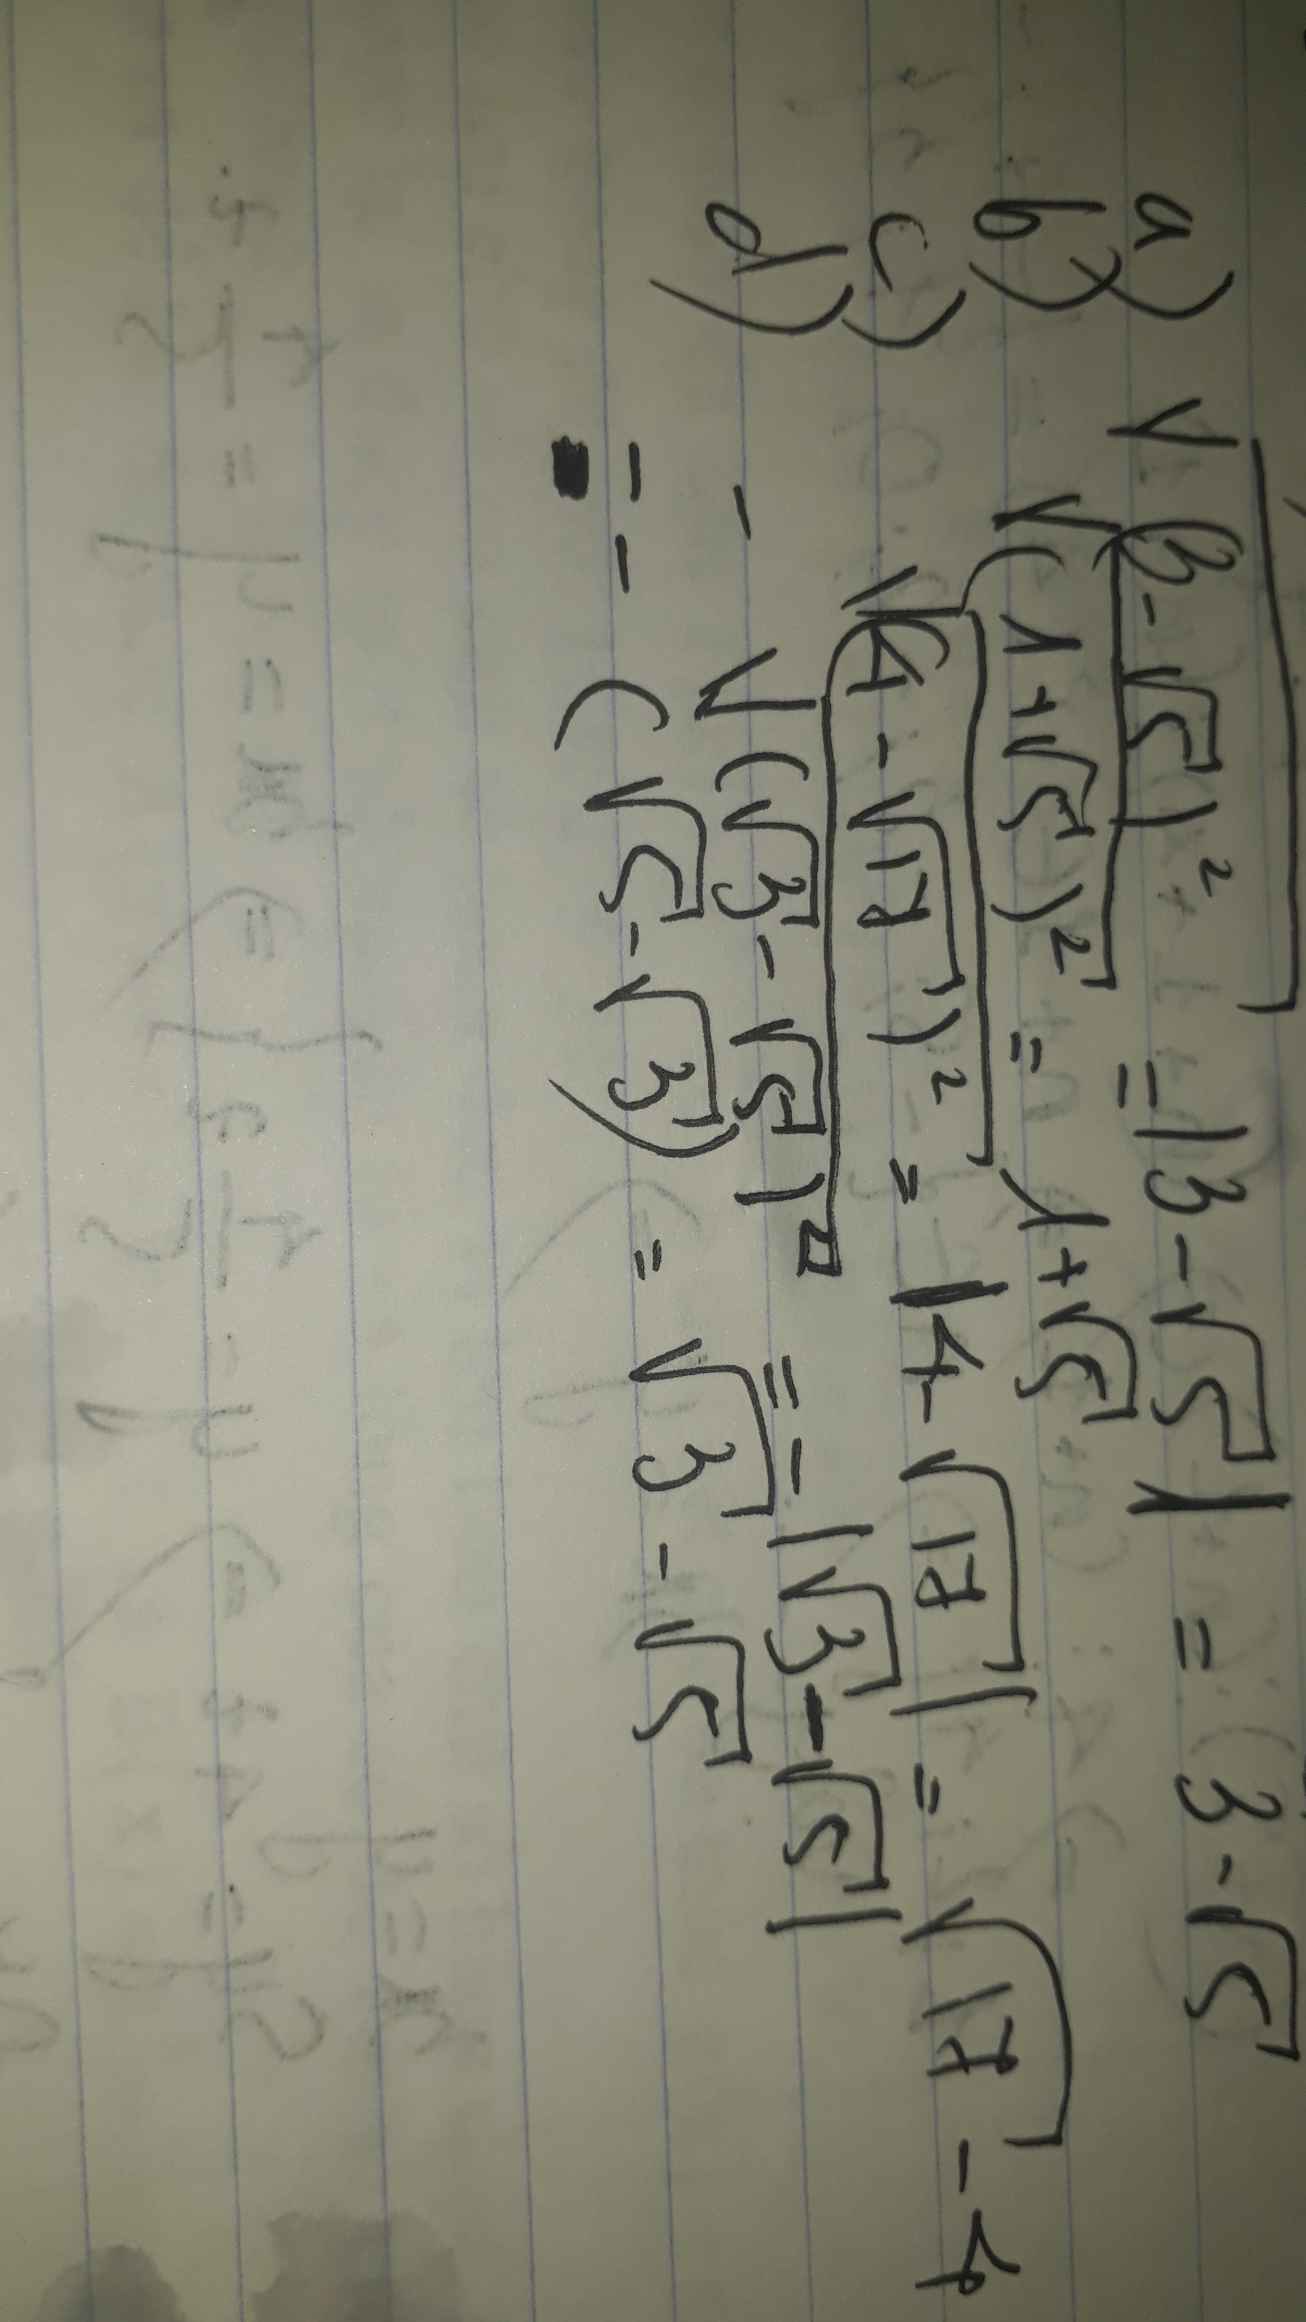 a) √(3-√5)² = |3-√5| = 3-√5
b) √(1+√5)² = 1+√5
c) √(4-√17)² = |4-√17| = √17-4
d) -√(√3-√5)² = -|√3-√5|
= -(√5-√3) = √3-√5